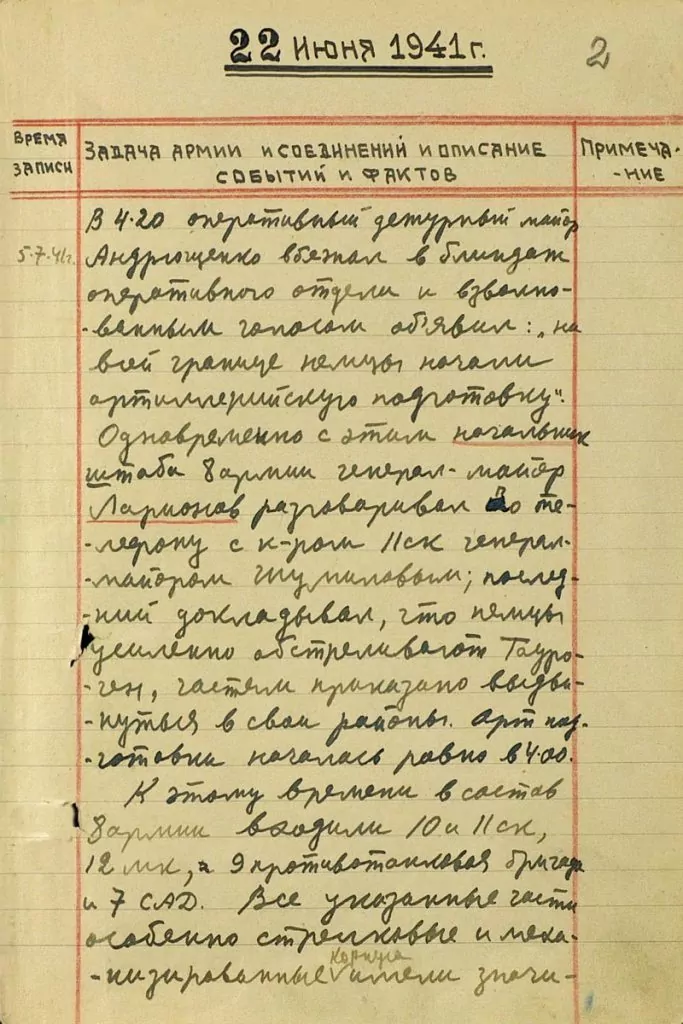 22 июня 1941г.
2
ВРЕМЯ ЗАПИСИ
ЗАДАЧА АРМИИ И СОЕДИНЕНИЙ И ОПИСАНИЕ
СОБЫТИЙ И ФАКТОВ
ПРИМЕЧА-
-НИЕ
5.7.41г.
В 4.20 оперативный дежурный майор
Андрющенко вбежал в блиндаж
оперативного отдела и взволно-
-ванным голосом об'явил: „на
всей границе немцы начали
артиллерийскую подготовку".
Одновременно с этим начальник
штаба 8 армии генерал-майор
Ларионов разговаривал по те-
-лефону с к-ром 11ск генерал-
-майором Шумиловым; послед-
-ний докладывал, что немцы
усиленно обстреливают Тауро-
-ген, частям приказано выдви-
-нуться в свои районы. Арт под-
-готовка началась ровно в 4.00.
К этому времени в состав
8 армии входили 10 и 11ск,
12 мк, 9 противотанковая бригада
и 7 САД. Все указанные части
особенно стрелковые и меха-
-низированные корпуса имели значи-